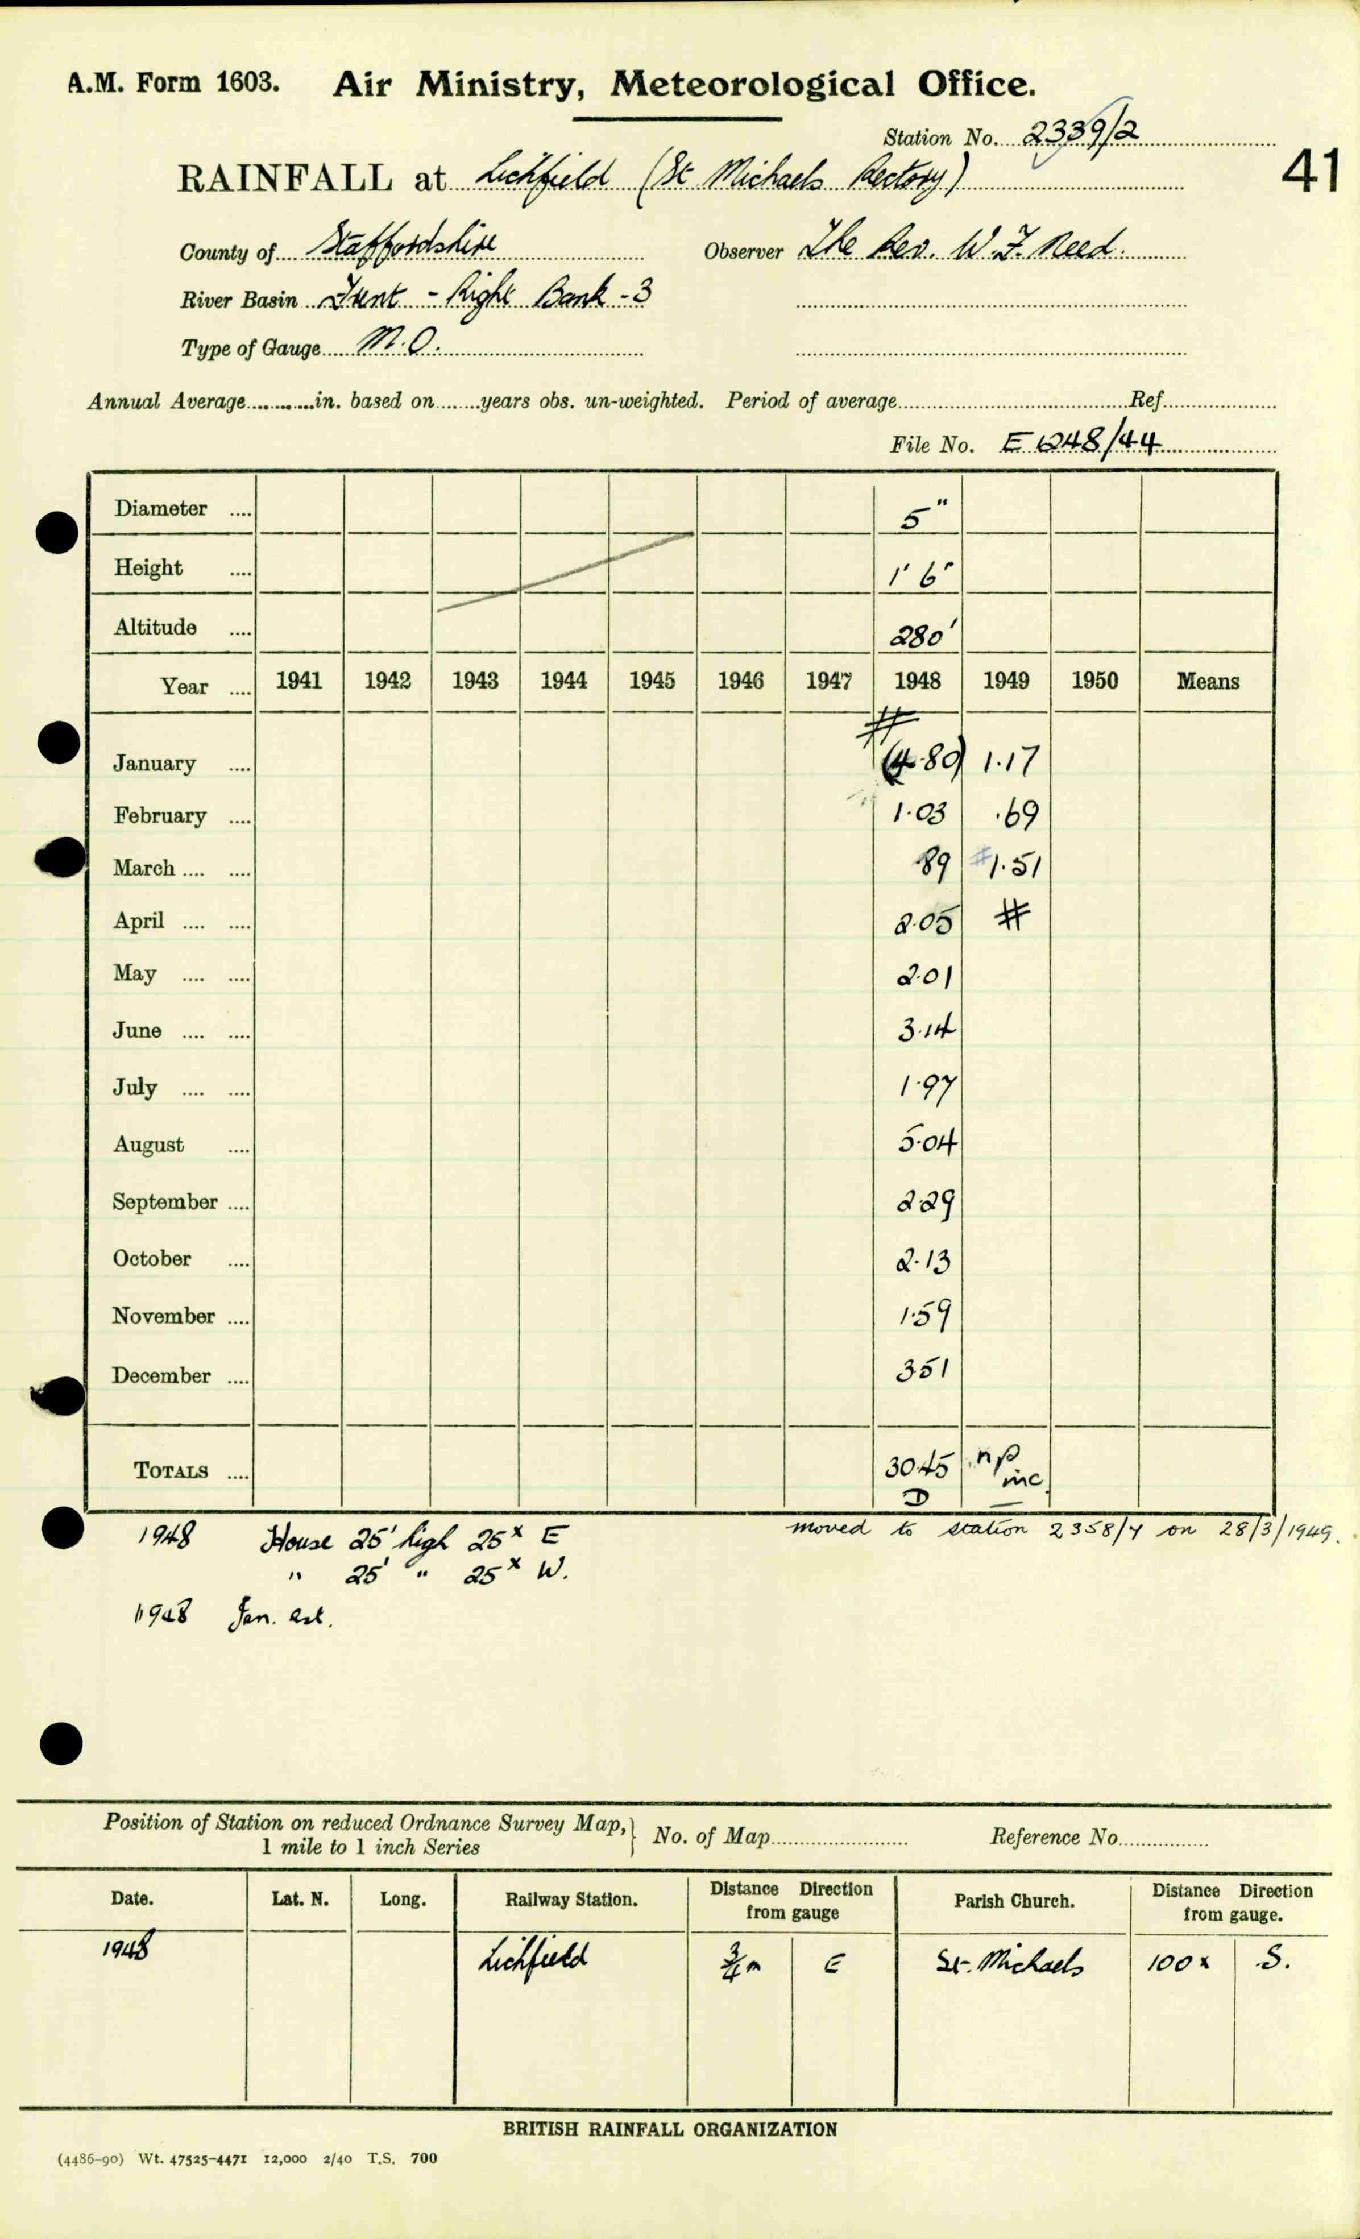 A.M. Form 1603. Air Ministry, Meteorological Office.
Station No. 2339/2
41
RAINFALL at Lichfield (St Michaels Rectory)
County of Staffordshire Observer The Rev. W.F. Reed.
River Basin Trent - Right Bank - 3
Type of Gauge M.O.
Annual Average............in. based on.......years obs. un-weighted. Period of average........Ref........
File No. E 6248/44
Diameter .... 5"
Height .... 1' 6"
Altitude .... 280'
Year .... 1941 1942 1943 1944 1945 1946 1947 1948 1949 1950 Means
#
January .... (4.80) 1.17
February .... 1.03 .69
March .... .... .89 #1.51
April .... .... 2.05 #
May .... .... 2.01
June .... .... 3.14
July .... .... 1.97
August .... 5.04
September .... 2.29
October .... 2.13
November .... 1.59
December .... 3.51
TOTALS .... 30.45 np
D inc
1948 House 25' high 25x E moved to station 2358/4 on 28/3/1949.
" 25' " 25x W.
1948 Jan. est.
Position of Station on reduced Ordnance Survey Map, } No. of Map........ Reference No........
1 mile to 1 inch Series
Date. Lat. N. Long. Railway Station. Distance Direction from gauge Parish Church. Distance Direction from gauge.
1948 Lichfield 3/4 m E St. Michaels 100x S.
BRITISH RAINFALL ORGANIZATION
(4486-90) Wt. 47525-4471 12,000 2/40 T.S. 700